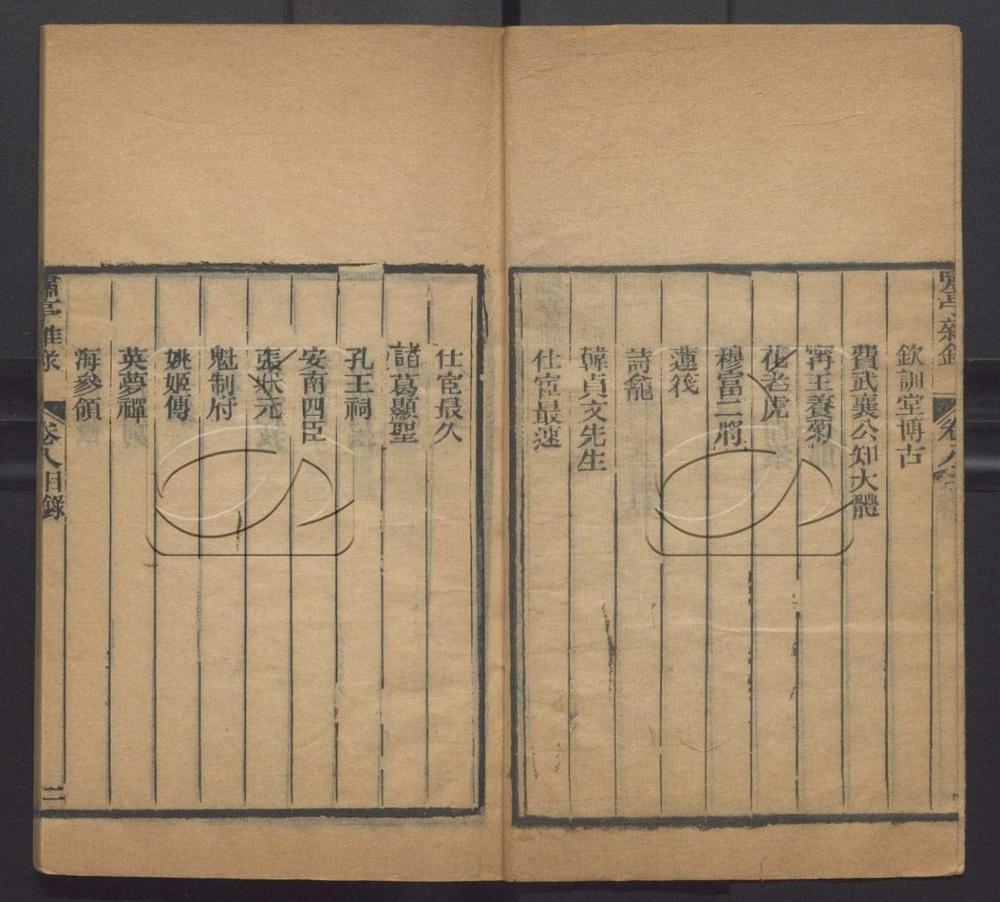 嘯亭雜錄
卷八
欽訓堂博古
費武襄公知大體
甯王養菊
花老虎
穆富二將
蓮筏
詩龕
韓貞文先生
仕宦最速
仕宦最久
諸葛顯聖
孔王祠
安南四臣
張狀元
魁制府
姚姬傳
英夢禪
海參領
嘯亭雜錄
卷八目錄
二